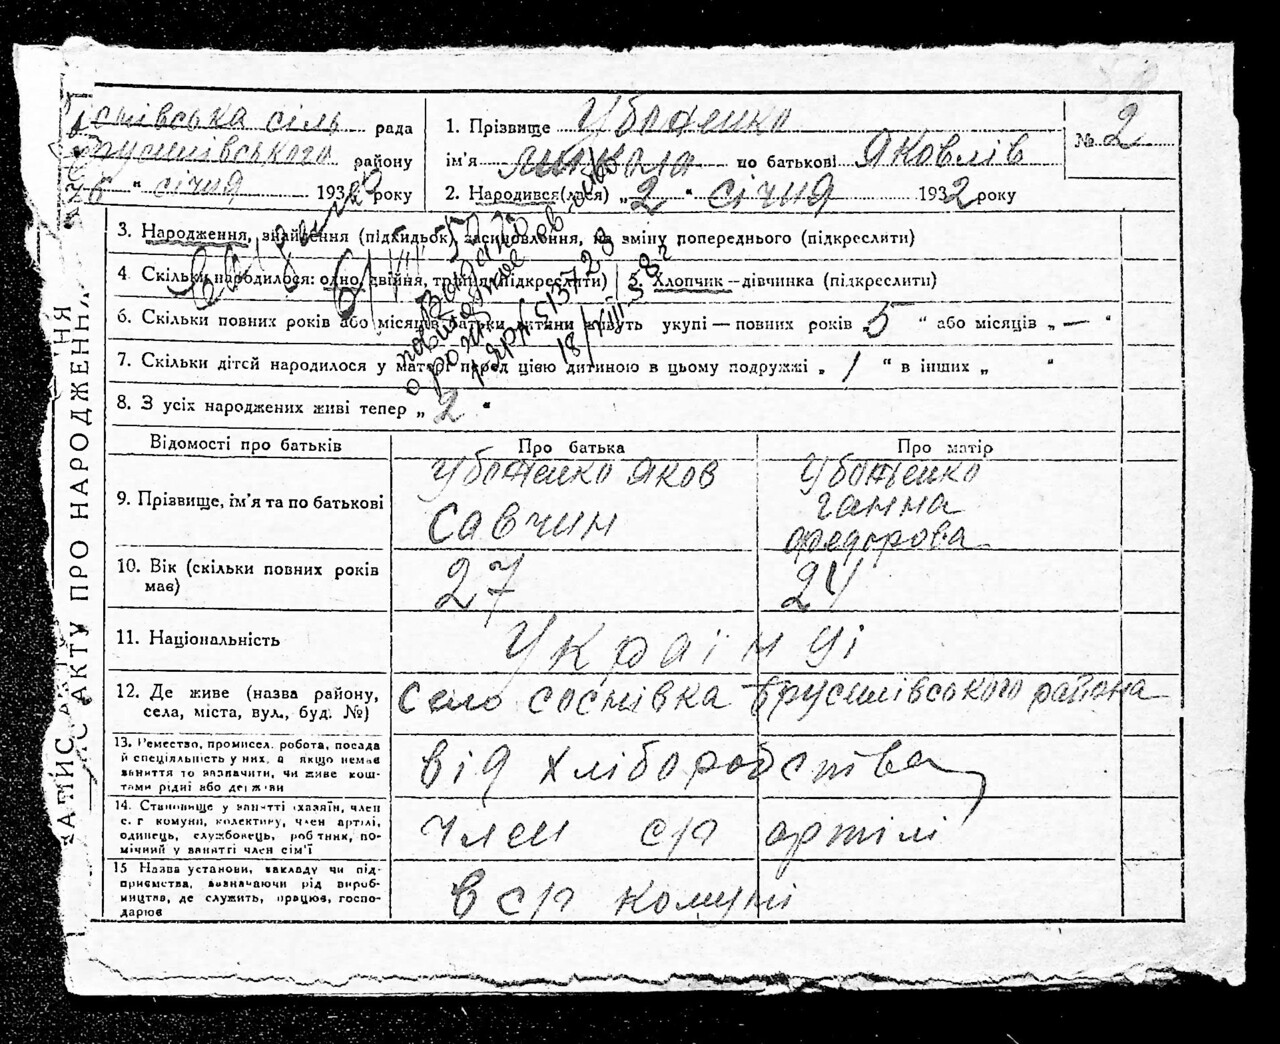 ЗАПИС АКТУ ПРО НАРОДЖЕННЯ
соснівська сіль рада
Брусилівського району
6 " січня 1932 року
1. Прізвище Убоженко
ім'я Микола по батькові Яковлів
2. Народився(лася) „ 2 " січня 1932 року
№ 2
3. Народження, знайдення (підкидьок) засиновлення, на зміну попереднього (підкреслити)
4. Скільки народилося: одно, двійня, трійня (підкреслити) 5. Хлопчик—дівчинка (підкреслити)
6. Скільки повних років або місяців батьки дитини живуть укупі — повних років „ 5 " або місяців „ — "
7. Скільки дітей народилося у матері перед цією дитиною в цьому подружжі „ 1 " в інших „ "
8. З усіх народжених живі тепер „ 2 "
повторное
о рож
513728
18/VIII-58 г
Відомості про батьків Про батька Про матір
9. Прізвище, ім'я та по батькові
Убоженко Яков
Савчин
Убоженко
Ганна
Федорова
10. Вік (скільки повних років має)
27 24
11. Національність Українці
12. Де живе (назва району,
села, міста, вул., буд. №)
село соснівка Брусилівського района
13. Ремество, промисел, робота, посада
й спеціяльність у них, а якщо немає
заняття то зазначити, чи живе кош-
тами рідні або держави
від хліборобства
14. Становище у занятті (хазяїн, член
с. г комуни, колективу, член артілі,
одинець, службовець, робітник, по-
мічний у занятті член сім'ї
член с/г артілі
15 Назва установи, закладу чи під-
приємства, зазначаючи рід вироб-
ництва, де служить, працює, госпо-
дарює
в с/г комуні